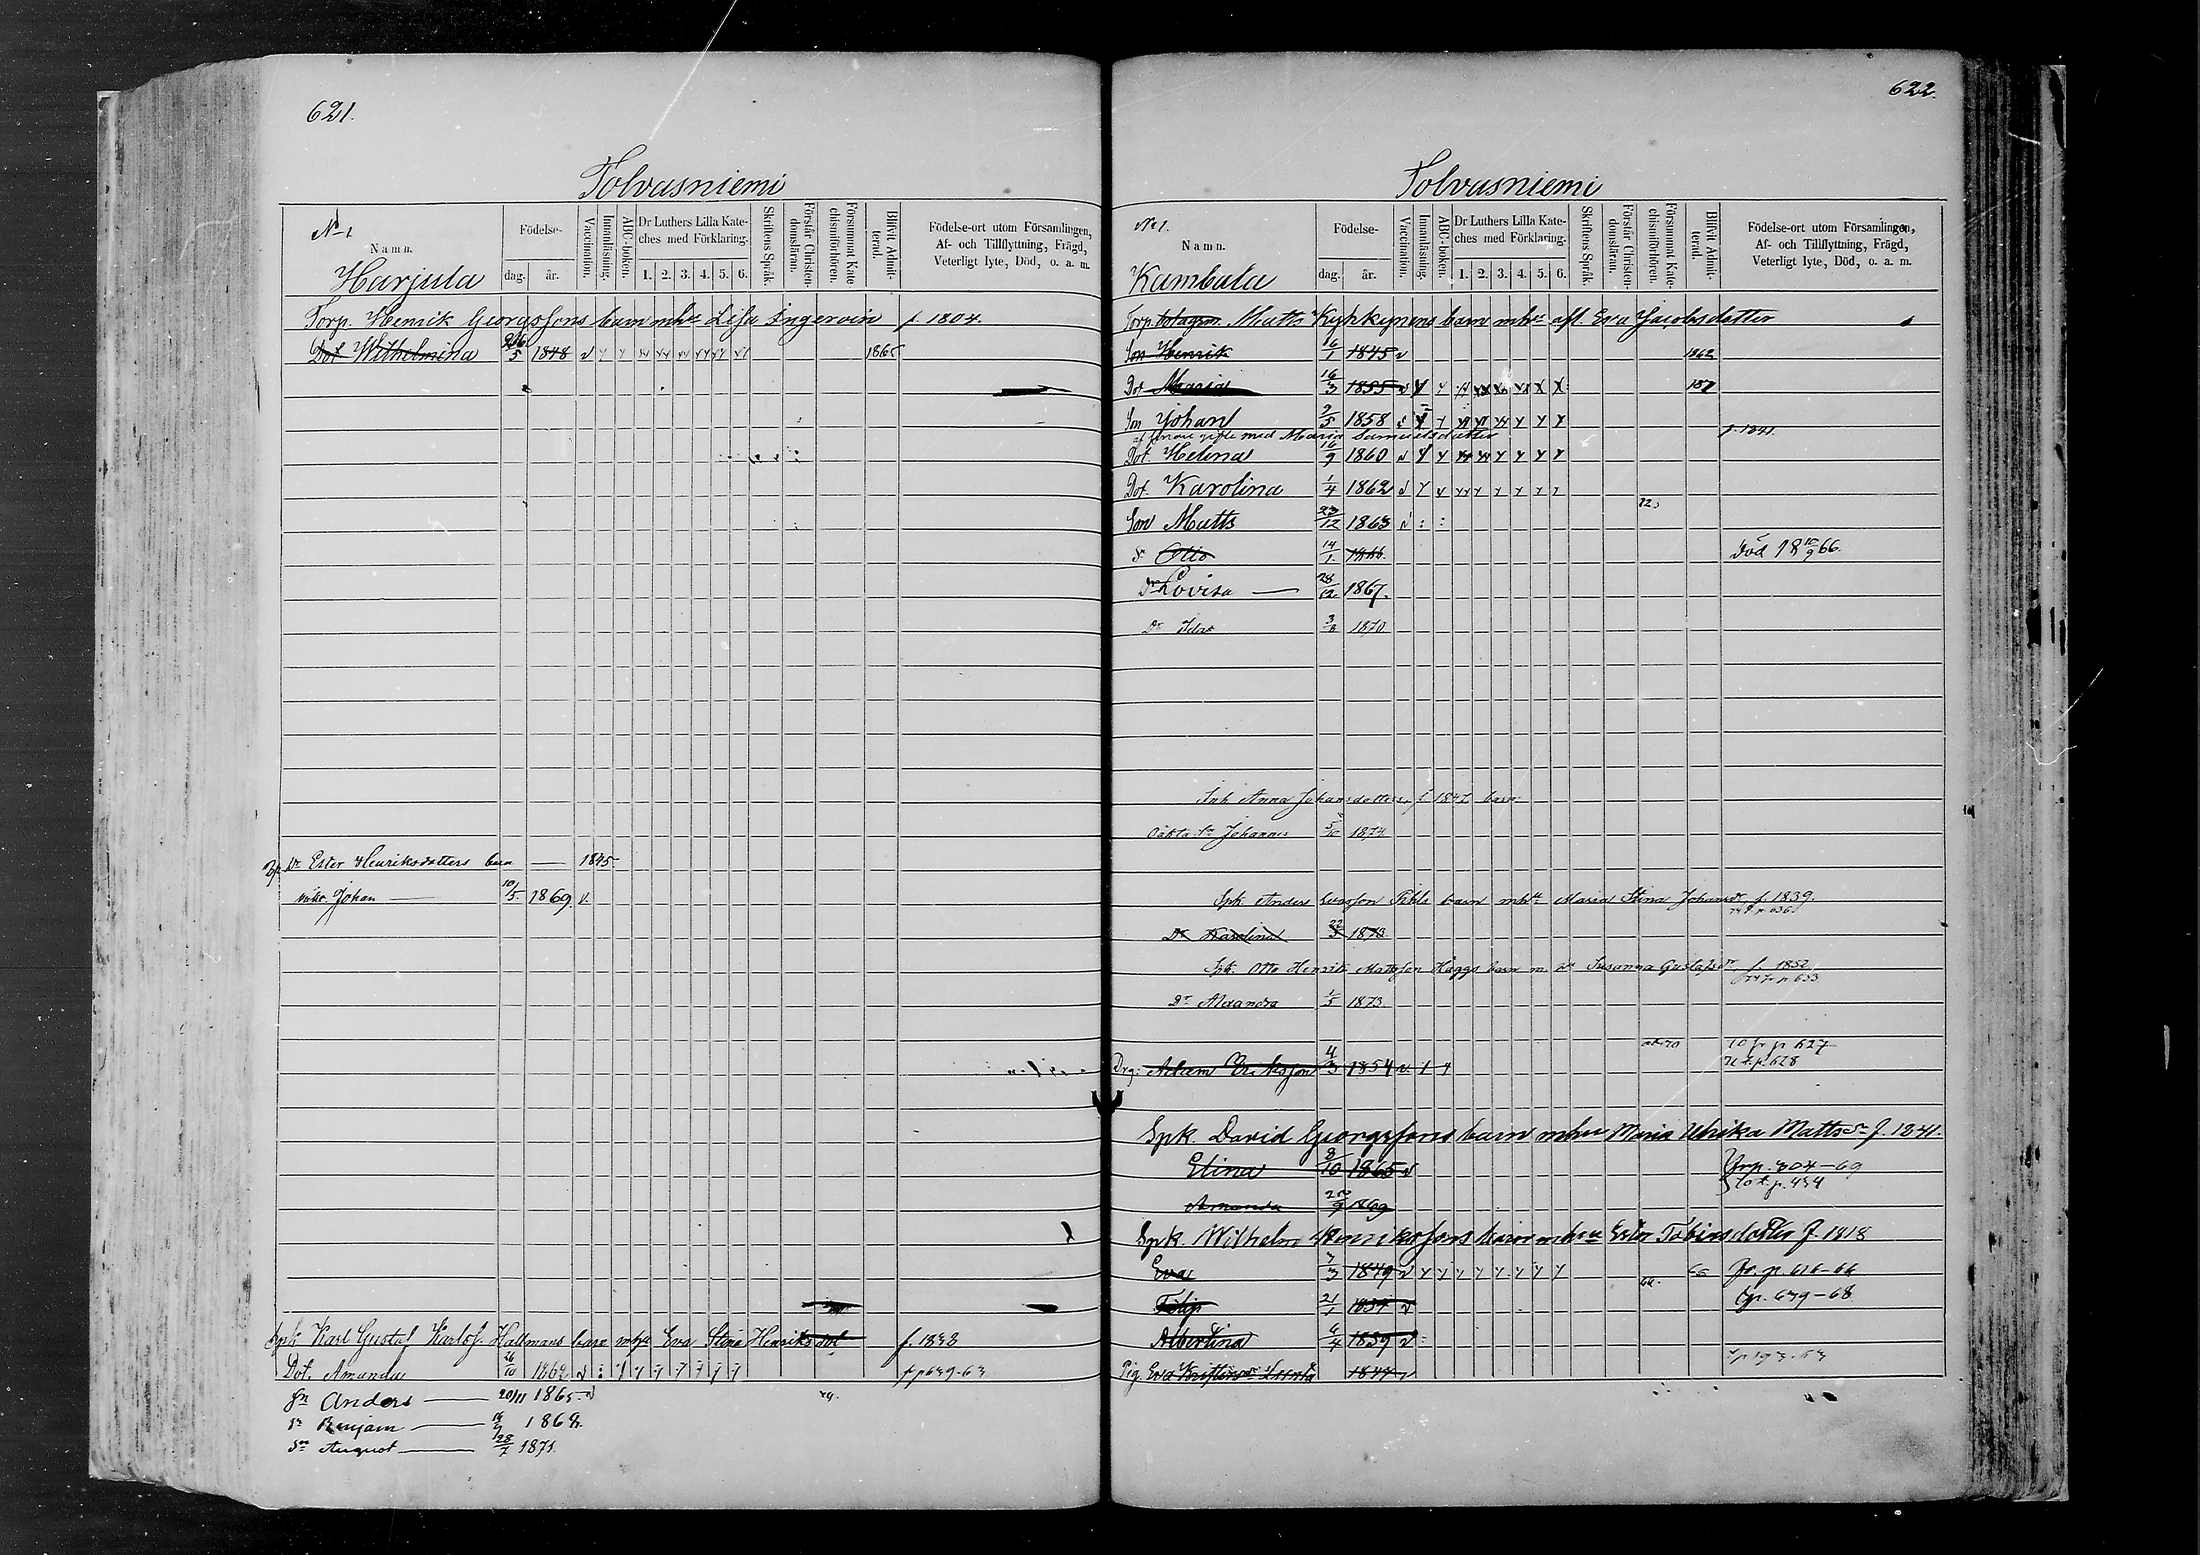 621.
Tolvasniemi
No 1
Namn.
Födelse-
dag. år.
Vaccination.
Innanläsning.
ABC-boken.
Dr Luthers Lilla Kate-
ches med Förklaring.
1. 2. 3. 4. 5. 6.
Skriftens Språk.
Förstår Christen-
domsläran.
Försummat Kate-
chismiförhören.
Blifvit Admit-
terad.
Födelse-ort utom Församlingen,
Af- och Tillflyttning, Frägd,
Veterligt lyte, Död, o. a. m.
Harjula
Torp. Henrik Georgssons barn mhu Lisa Ingervoin f. 1804.
Dot Wilhelmina 26/5 1848 1865
Dr Ester Henriksdotters barn — 1845
oäkt. Johan — 10/5 1869 v.
Spk Karl Gustaf Karlss. Hallmans barn mhu Eva Stina Henriksdot f. 1838
Dot. Amanda 26/10 1862 fr p 639-63
Sn Anders — 20/11 1865
Sn Benjam — 1868
Sn August — 28/7 1871.
622.
Tolvasniemi
No 1.
Namn.
Födelse-
dag. år.
Vaccination.
Innanläsning.
ABC-boken.
Dr Luthers Lilla Kate-
ches med Förklaring.
1. 2. 3. 4. 5. 6.
Skriftens Språk.
Förstår Christen-
domsläran.
Försummat Kate-
chismiförhören.
Blifvit Admit-
terad.
Födelse-ort utom Församlingen,
Af- och Tillflyttning, Frägd,
Veterligt lyte, Död, o. a. m.
Kambala
Torp. Matts Kyhkynens barn mhu afl. Eva Jacobsdotter
Son Henrik 16/1 1845 v 1862
Dot Maria 16/3 1855 187
Son Johan 2/5 1858
gifte med Maria Samuelsdotter f. 1841.
Dot. Helena 16/9 1860
Dot. Karolina 1/4 1862
Son Matts 23/12 1863
Sn Otto 14/1 1866. död 18 10/9 66.
Dr Lovisa — 28/12 1867.
Dr Ida 3/8 1870
Inh Anna Johansdotters, f. 1847 barn
Oäkta Sn Johannes 5/10 1874
Spk Anders barn mhu Maria Stina Johansdr, f. 1839.
Dr Karolina 1873
Spk. Otto Henrik Mattsson Häggs barn m. Susanna Gustafsdr f. 1852
Dr Alexandra 1/5 1873
70 fr p 627
Drg: Adam Eriksson 4/3 1854 v 72 t. p. 628
Spk. David Georgssons barn mhu Maria Ulrika Mattsdr f. 1841.
Elina 8/10 1865 v fr p. 304-69
70 t. p. 454
Amanda 1869
Spk. Wilhelm Henrikssons barn mhu Ester Tobiasdotter f. 1818
Eva 7/3 1849 fr. p. 616-66
Filip 21/1 1854 v p. 679-68
Albertina 6/4 1859 v
Pig. Eva 1844 v